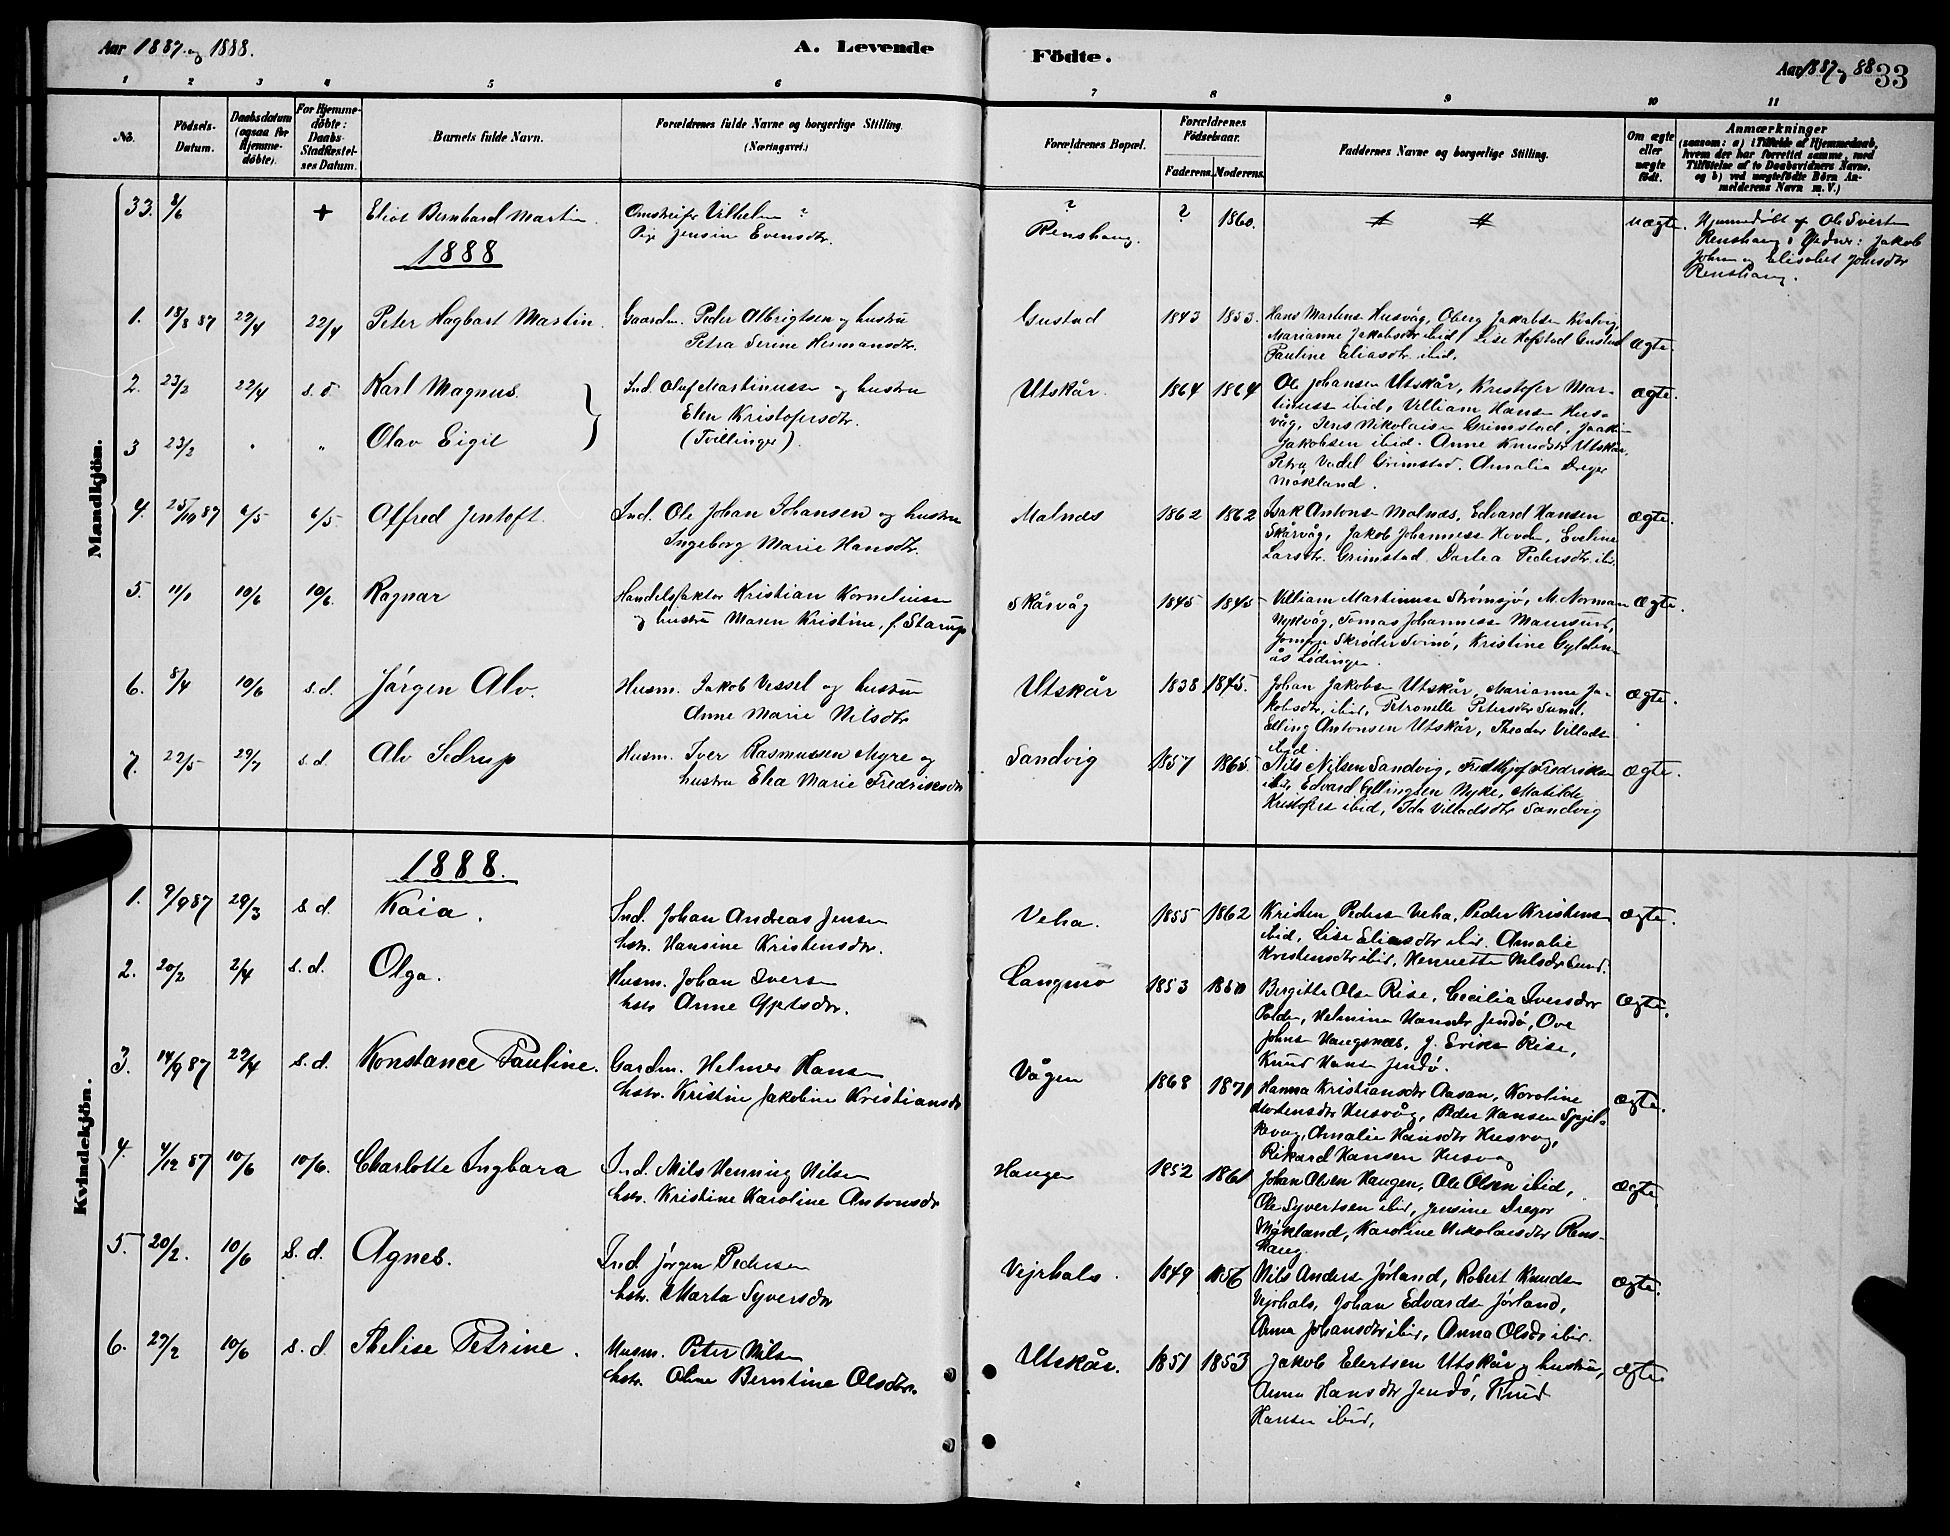 Aar 1887 og 1888.
A. Levende
Födte.
Aar 1887 og 88
33
1 2 3 4 5 6 7 8 9 10 11
No.
Födsels-Datum.
Daabsdatum (ogsaa for Hjemme-döbte).
For Hjemme-döbte: Daabs-Stadfæstel-ses Datum.
Barnets fulde Navn.
Forældrenes fulde Navne og borgerlige Stilling. (Næringsvei.)
Forældrenes Bopæl.
Forældrenes Födselsaar.
Faderens. Moderens.
Faddernes Navne og borgerlige Stilling.
Om ægte eller uægte födt.
Anmærkninger
(saasom: a) i Tilfælde af Hjemmedaab, hvem der har forrettet samme, med Tilföielse af to Daabsvidners Navne, og b) ved uægtefödte Börn Anmelderens Navn m. V.)
Mandkjön.
33. 8/6 + Eliot Bernhard Martin. Omstreifer Vilhelm ? ? ? 1860. uægte. Hjemmedöbt af Ole Sivert
Pige Jensine Evensdtr. Renshaug. Renshaug, Vidner: Jakob
1888
Johnsen og Elisabet Johnsdtr
Renshaug.
1. 18/8 87 22/4 22/4 Peter Hagbart Martin. Gaardm. Peder Albrigtsen og hustru Gustad 1843 1853. Hans Martens Husvåg, Oberg Jakobsen
Petra Serine Hermansdtr. Marianne Jakobsdtr ibid, Lise Hofstad Gustad ægte.
Pauline Eliasdtr. ibid.
2. 23/2 22/4 s. d. Karl Magnus. Ind. Oluf Martinussen og hustru Utskår. 1864 1864 Ole Johansen Utskår, Kristofer Mar-
ægte.
Elen Kristofersdtr. tinussen ibid, Villiam Hansen Hus-
3 23/2 " " Olav Eigil (Tvillinger). våg, Jens Nikolaisen Grimstad, Joakim
Jakobsen ibid. Anne Knudsdtr Utskår.
Petra Vadel Grimstad. Amalia Dreyer
Mökland.
4. 25/10 87 6/5 6/5. Alfred Jentoft. Ind. Ole Johan Johansen og hustru Malnes 1862 1862 Isak Antons Malnes, Edvard Hansen ægte.
Ingeborg Marie Hansdtr. Skårvåg, Jakob Johannessen Hovden, Eveline
Larsdtr. Grimstad. Dortea Pedersdtr. ibid.
5. 11/1 10/6 10/6. Ragnar Handelsfaktor Kristian Korneliussen Skårvåg 1845 1845 Villiam Martinussen Strömsjö, M. Norman ægte.
og hustru Maren Kristine, f. Starup Nykvåg, Tomas Johannessen
Skröder Svinö, Kristine Gylden-
ås Lödingen.
6. 8/4 10/6 s. d. Jörgen Alv. Husm. Jakob Vessel og hustru Utskår 1838 1845. Johan Jakobsen Utskår, Marianne Ja- ægte.
Anne Marie Nilsdtr kobsdtr. ibid, Petronelle Petersdtr Sund,
Elling Antonsen Utskår, Theodor Villads
ibid.
7. 22/5 29/7 s. d. Alv Sedrup Husm. Iver Rasmussen Myre og Sandvig 1857 1865. Nils Nilsen Sandvig, Fredthjof Fredriksen ægte.
hustru Elea Marie Fredriksdtr ibid, Edvard Ellingsen Nyke, Matilde
Kristofers ibid, Ida Villadsdtr Sandvig
Kvindekjön.
1888.
1. 9/9 87 29/3 s. d. Kaia. Ind. Johan Andreas Jensen Veha. 1855 1862 Kristen Pedersen Veha, Peder Kristens ægte.
hstr. Hansine Kristensdtr. ibid, Lise Eliasdtr ibid. Amalie
Kristensdtr ibid, Henriette Nilsdtr Sund.
2. 20/2 2/4 s. d. Olga. Husm. Johan Iversen Langmo 1853 1860 Bergitte Olsen Rise, Cecilia Iversdtr ægte.
hstr Anne Helmina Hansdtr Jendö, Ove
Johns Vangsnes, J. Eriksen Rise,
Knud Hansen Jendö.
3. 14/9 87 22/4 s. d. Konstance Pauline. Gardm. Helmer Hansen Vågen 1868 1871 Hanna Kristiansdtr Aasan, Karoline ægte.
hstr. Kristine Jakobine Kristiansdtr Mortensdtr Husvåg, Peder Hansen Spjel-
kevåg, Amalie Hansdtr Husvåg,
Rikard Hansen Husvåg
4. 4/12 87 10/6 10/6. Charlotte Ingbara Ind. Nils Henning Nilsen Haugen 1852 1861 Johan Olsen Haugen, Ole Olsen ibid, ægte
hstr. Kristine Karoline Antonsdtr Ole Syvertsen ibid, Jensine Dreyer
Mökland, Karoline Nikolaisdtr Rens-
haug.
5. 20/2. 10/6 s. d. Agnes. Ind. Jörgen Pedersen Vejrhals. 1849 1856 Nils Andersen Jörland, Robert Knudsen ægte.
hstr. Marta Syversdtr Vejrhals, Johan Edvardsen Jörland,
Anna Johansdtr ibid, Anna Olsdtr ibid.
6. 27/2 10/6 s. d. Thelise Petrine. Husm. Peter Nilsen Utskår. 1851 1853 Jakob Elertsen Utskår og hustru, ægte
hstr. Oline Berntine Olsdtr. Anna Hansdtr Jendö, Knud
Hansen ibid,